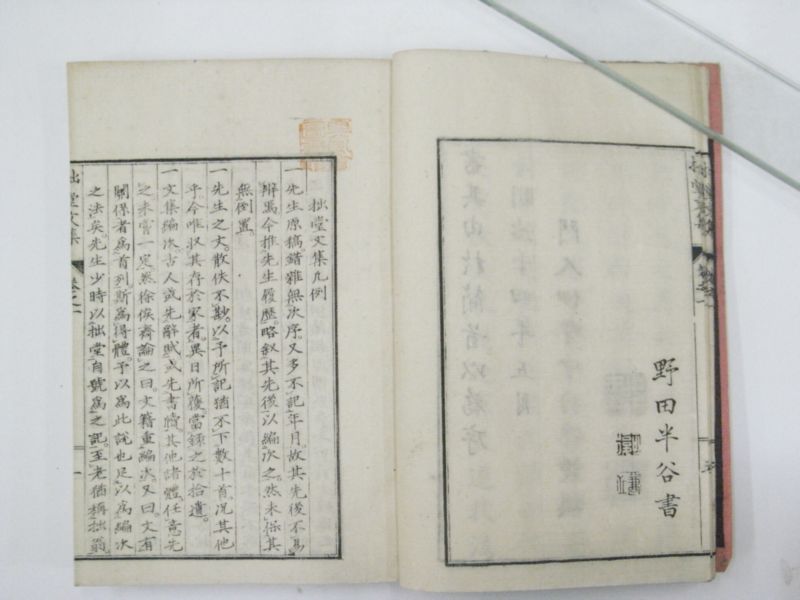 野田半谷書
拙堂文集凡例
一先生原稿錯雜無次序又多不記年月故其先後不易
辨焉今推先生履歷略叙其先後以編次之然未保其
無倒置
一先生之文散佚不尠以予所記猶不下數十首況其他
乎今唯収其存於家者異日所獲當錄之於拾遺
一文集編次古人或先辭賦或先書牘其他諸體任意先
之未嘗一定然徐俟齋論之曰文籍重編次又曰文有
關係者爲首列斯爲得體予以爲此說也足以爲編次
之法矣先生少時以拙堂自號爲之記至老猶稱拙翁
拙堂文集
卷之一
一